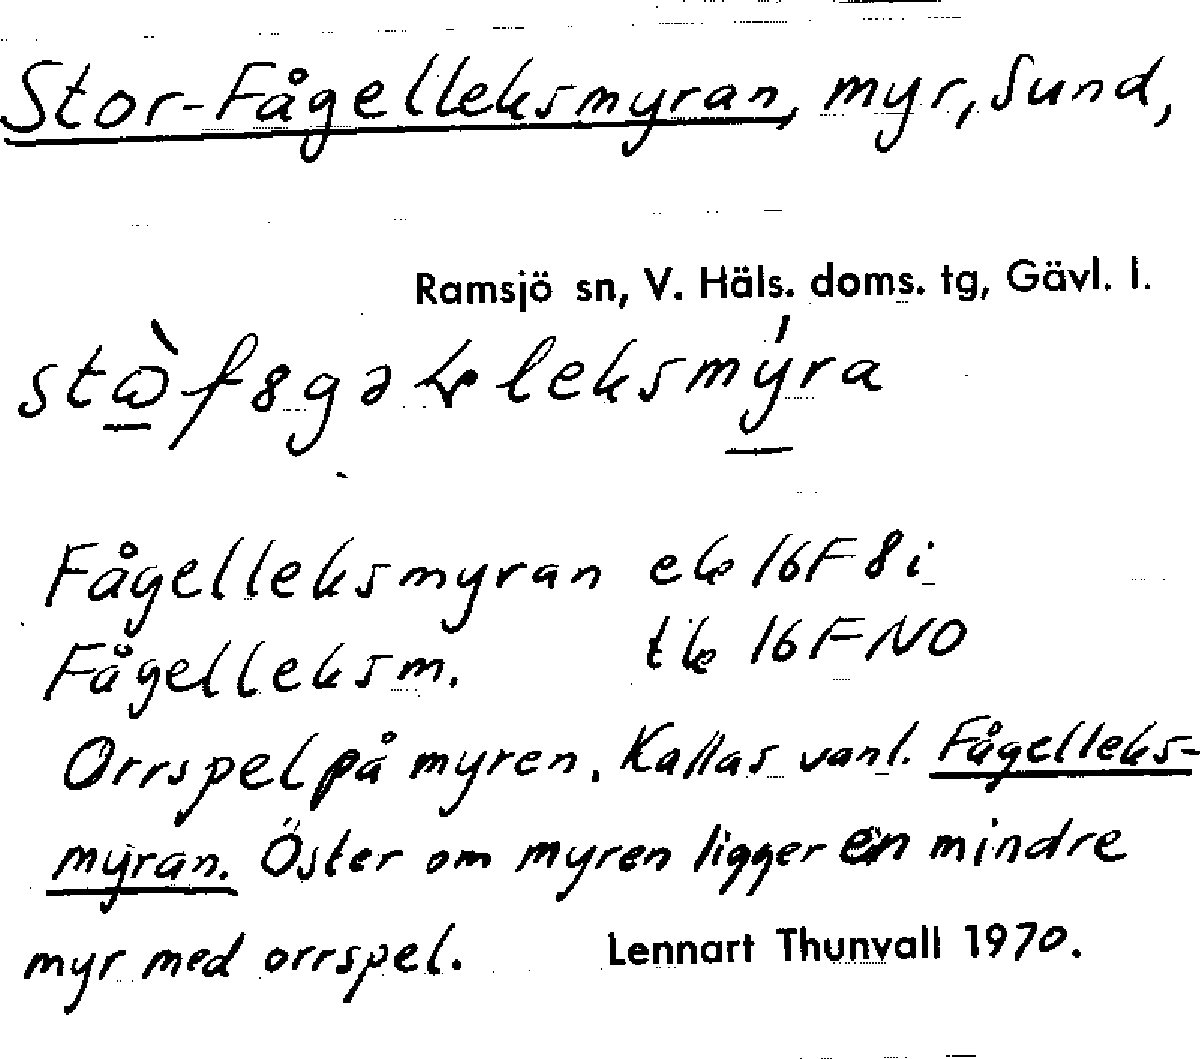 Stor-Fågelleksmyran, myr, Sund,
Ramsjö sn, V. Häls. doms. tg, Gävl. l.
Fågelleksmyran ek 16F 8i
Fågelleksm. tk 16F NO
Orrspel på myren. Kallas vanl. Fågelleks-
myran. Öster om myren ligger en mindre
myr med orrspel. Lennart Thunvall 1970.